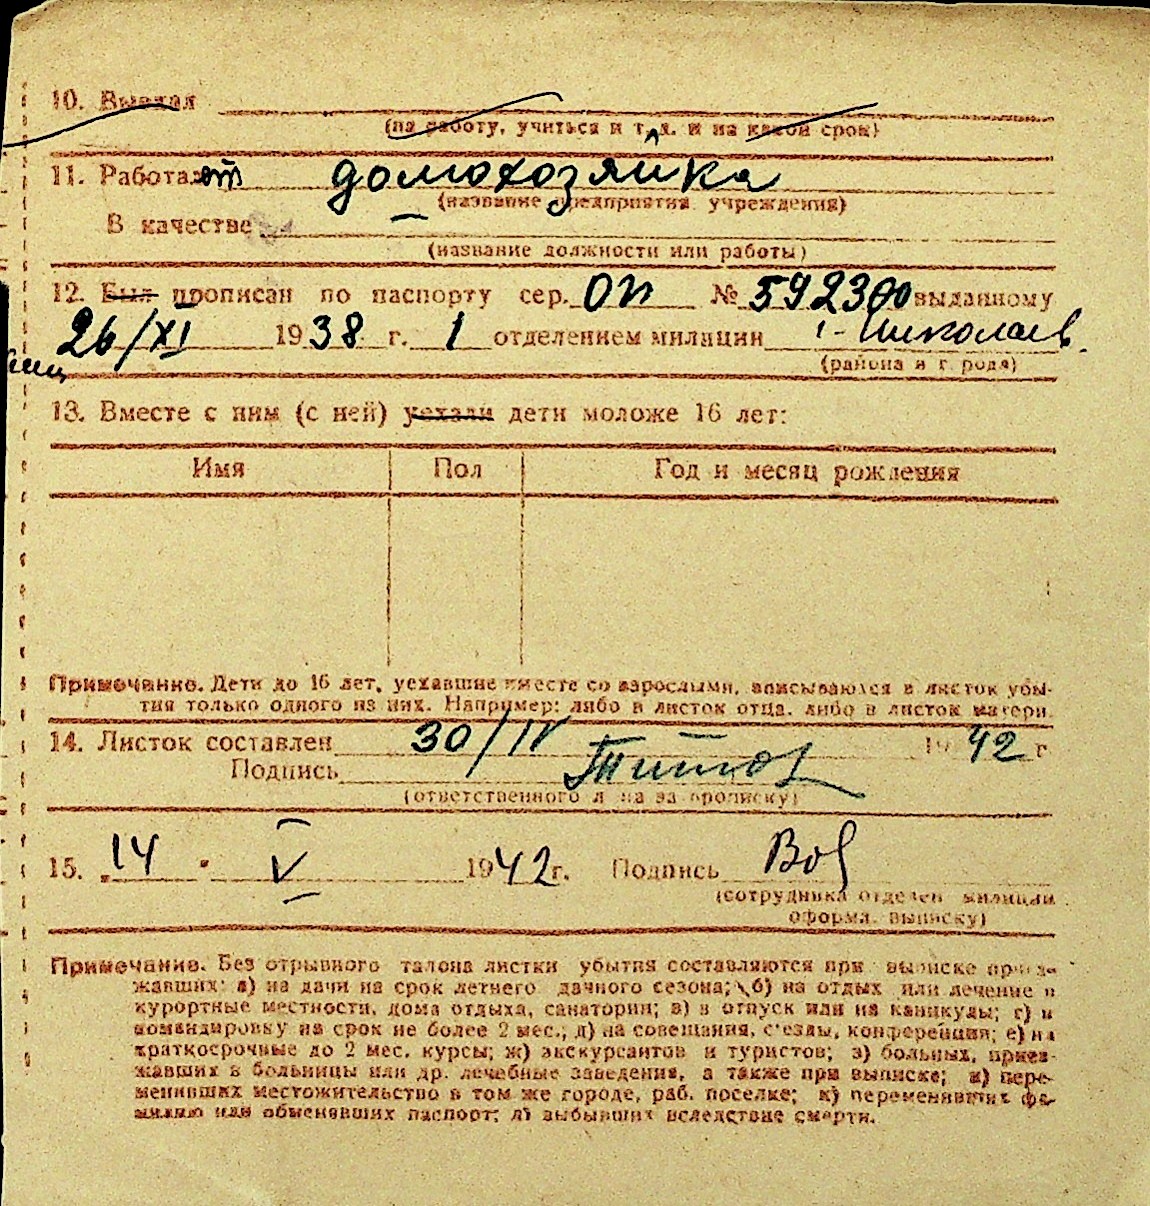 10. Выехал
(на работу, учиться и т. д. и на какой срок)
11. Работает домохозяйка
(название предприятия учреждения)
В качестве —
(название должности или работы)
12. Был прописан по паспорту сер. ОП № 592300 выданному
26/XI 1938 г. 1 отделением милиции г. Николаев
(района и города)
13. Вместе с ним (с ней) уехали дети моложе 16 лет:
Имя Пол Год и месяц рождения
Примечание. Дети до 16 лет, уехавшие вместе со взрослыми, вписываются в листок убы-
тия только одного из них. Например: либо в листок отца, либо в листок матери.
14. Листок составлен 30/IV 1942 г
Подпись Титов
(ответственного лица за прописку)
15. 14 " V 1942 г. Подпись
(сотрудника отделен милиции
оформ. выписку)
Примечание. Без отрывного талона листки убытия составляются при выписке приез-
жавших: а) на дачи на срок летнего дачного сезона; б) на отдых или лечение в
курортные местности, дома отдыха, санатории; в) в отпуск или на каникулы; г) в
командировку на срок не более 2 мес.; д) на совещания, с'езды, конференции; е) на
краткосрочные до 2 мес. курсы; ж) экскурсантов и туристов; з) больных, приез-
жавших в больницы или др. лечебные заведения, а также при выписке; и) пере-
менивших местожительство в том же городе, раб. поселке; к) переменивших фа-
милию или обменявших паспорт; л) выбывших вследствие смерти.